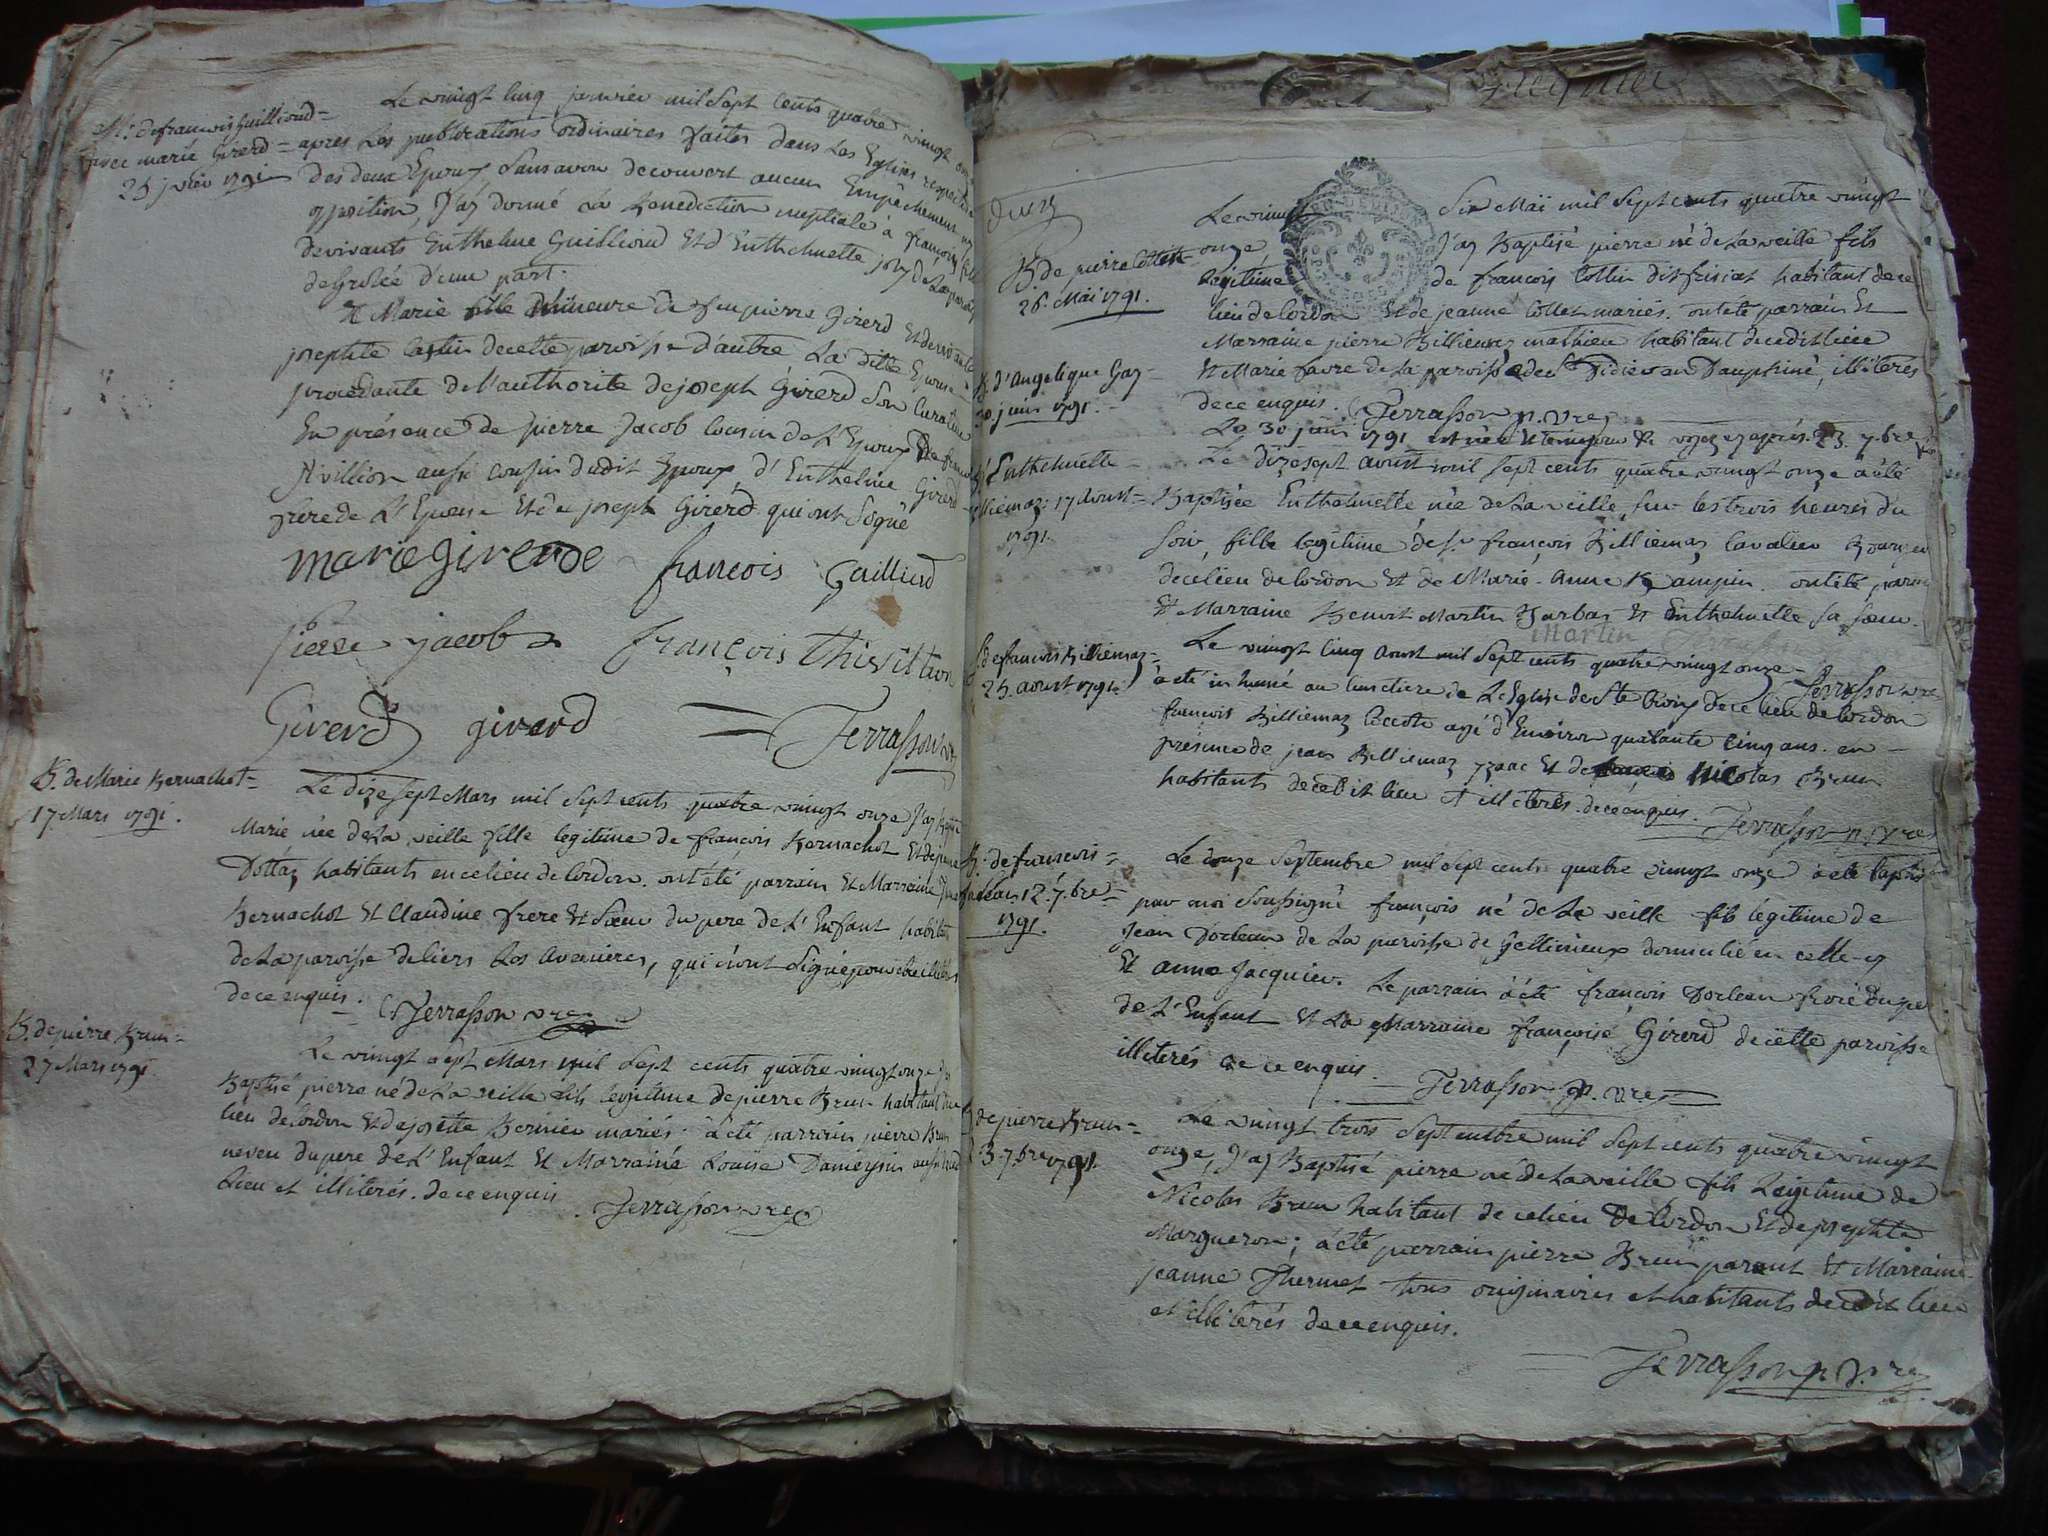 M: de francois Guilliord =
avec marie Girerd =
25 janvier 1791
Le vingt cinq janvier mil Sept Cents quatre vingt onze
apres Les publications ordinaires faites dans Les Eglises respectives
des deux Epoux Sans avoir decouvert aucun Empêchement ny
opposition, J'ay donné La Benediction nuptiale à françois fils
devivants Enthelme Guilliord Et d'Enthelmette joly de La paroisse
de Grolée d'une part.
Et Marie fille Mineure de feu pierre Girerd Et de vivante
josephte Cattin decette paroisse d'autre La ditte Epouse
procedante de L'authorité de joseph Girerd Son Curateur
En présence de pierre Jacob Cousin de L'Epoux De francois
thivillion aussi cousin dudit Epoux, d'Enthelme Girerd
frere de L'Epouse Et de joseph Girerd qui ont Signé
marie girerde francois Guilliord
pierre jacob françois thivillion
Girerd girerd = Terrasson vre
B. de Marie Bernachot =
17 Mars 1791.
Le dixesept Mars mil Sept cents quatre vingt onze J'ay Baptisé
Marie née de La veille fille legitime de françois Bernachot Et de jeanne
Dottaz habitants en ce lieu de Cordon. ont été parrain Et Marraine
Bernachot Et Claudine frere Et Soeur du pere de L'Enfant habitants
de La paroisse de Ciers Les Avenieres, qui n'ont Signé pour être illiterés
de ce enquis. Terrasson vre
B. de pierre Brun =
27 Mars 1791.
Le vingt Sept Mars mil Sept cents quatre vingt onze J'ay
Baptisé pierre né de La veille fils legitime de pierre Brun habitant en ce
lieu de Cordon Et de josette Bernier mariés. à été parrain pierre Brun
neveu du pere de L'Enfant Et Marraine Louïse Dameysin
Lieu et illiterés. de ce enquis
Terrasson vre
B. de pierre Collin
26. Mai 1791.
Le vingt Six Maï mil Sept cents quatre vingt
onze, J'ay Baptisé pierre né de La veille fils
legitime de françois Collin dit frisiat habitant de ce
lieu de Cordon Et de jeanne Collet mariés. ont été parrain Et
Marraine pierre Billiemaz mathieu habitant decedit lieu
Et Marie favre de La paroisse de St Didier en Dauphiné, illiteres
de ce enquis. Terrasson p. Vre
B. d'Angelique Gay =
30 juin 1791.
Le 30 juin 1791 voyez cy après. 23. 7.bre
B. d'Enthelmette
Billiemaz. 17 Aoust =
1791.
Le dixesept Aoust mil Sept cents quatre vingt onze à été
Baptisée Enthelmette, née de La veille, Sur Les trois heures du
Soir, fille legitime de Sr. françois Billiemaz Cavalier Bourgeois
de ce lieu de Cordon Et de Marie-Anne Rampin. ont été parrain
Et Marraine Benoit Martin Barbaz Et Enthelmette Sa Soeur.
Martin
Terrasson vre
S. de francois Billiemaz =
25. aoust 1791.
Le vingt Cinq Aoust mil Sept cents quatre vingt onze
à été inhumé au Cimetiere de L'Eglise de Ste Croix de ce lieu de Cordon
francois Billiemaz âgé d'Environ quarante Cinq ans. en
présence de jean Billiemaz Et de Nicolas Brun
habitants de cedit lieu Et illiterés. de ce enquis.
Terrasson p. Vre
B. de francois =
12. 7.bre =
1791.
Le douze Septembre mil Sept cents quatre vingt onze à été baptisé
par moi Soussigné françois né de La veille fils légitime de
Jean de La paroisse de domicilié en celle-cy
Et Anne Jacquier. Le parrain à été françois frere du pere
de L'Enfant Et La Marraine françoise Girerd decette paroisse
illiterés de ce enquis.
Terrasson p. vre
B. de pierre Brun =
23. 7.bre 1791
Le vingt trois Septembre mil Sept cents quatre vingt
onze, J'ay Baptisé pierre né de La veille fils Legitime de
Nicolas Brun habitant de ce lieu De Cordon Et de josephte
Margueron; à été parrain pierre Brun parent Et Marraine
jeanne Thermet tous originaires et habitants de cedit lieu
et illiterés de ce enquis.
Terrasson p. Vre